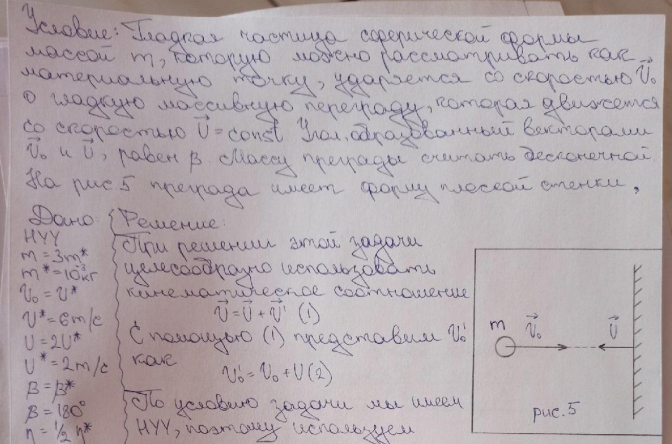 Условие: Гладкая частица сферической формы
массой m, которую можно рассматривать как
материальную точку, ударяется со скоростью V⃗₀
о гладкую массивную переграду, которая движется
со скоростью U⃗ = const Угол, образованный векторами
V⃗₀ и U⃗, равен β. Массу преграды считать бесконечной
На рис 5 преграда имеет форму плоской стенки,
Дано:
НУУ
m = 3m*
m* = 10⁻²кг
V₀ = V*
V* = 6 м/с
U = 2U*
U* = 2 м/с
β = β*
β = 180°
η = 1/2 η*
Решение:
При решении этой задачи
целесообразно использовать
кинематическое соотношение
V⃗ = U⃗ + V⃗' (1)
С помощью (1) представим V₀'
как
V₀' = V₀ + U (2)
По условию задачи мы имеем
НУУ, поэтому используем
m
V⃗₀
U⃗
рис. 5